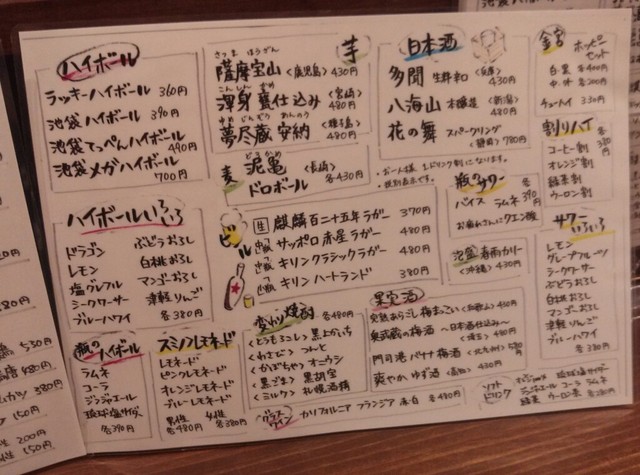 ハイボール
ラッキーハイボール 360円
池袋ハイボール 390円
池袋てっぺんハイボール 490円
池袋メガハイボール 700円
ハイボールいろいろ
ドラゴン
レモン
塩グレフル
シークワーサー
ブルーハワイ
ぶどうおろし
白桃おろし
マンゴーおろし
津軽りんご
各380円
瓶のハイボール
ラムネ
コーラ
ジンジャエール
琉球塩サイダー
各390円
スミノフレモネード
レモネード
ピンクレモネード
オレンジレモネード
ブルーレモネード
男性 各480円
女性 各380円
芋
さつま ほうざん
薩摩宝山 <鹿児島> 430円
渾身 甕仕込み <宮崎> 480円
夢尽蔵 安納 <種子島> 480円
麦 泥亀 <長崎>
ドロボール 各430円
ビール
生 麒麟百二十五年ラガー 370円
中瓶 サッポロ赤星ラガー 480円
中瓶 キリンクラシックラガー 480円
小瓶 キリンハートランド 380円
変わり焼酎 各480円
<とうもろこし> 黒よかいち
<わさび> つんと
<かぼちゃ> オニウシ
<黒ごま> 黒胡宝
<ミルク> 札幌酒精
グラスワイン カリフォルニア フランジア 赤・白 各480円
日本酒
多聞 生貯和 <兵庫> 430円
八海山 本醸造 <新潟> 480円
花の舞 スパークリング <静岡> 780円
・お一人様、1ドリンク制になります。
・税別表示です。
瓶のサワー
バイス ラムネ 390円
お疲れさんにクエン酸
泡盛 春雨カリー
<沖縄> 430円
果実酒
完熟あらごし梅まっこい <和歌山> 480円
奥武蔵の梅酒 〜日本酒仕込み〜 <埼玉> 480円
門司港バナナ梅酒 <北九州> 580円
爽やか ゆず酒 <高知> 430円
ソフトドリンク
ジンジャエール コーラ ラムネ
緑茶 ウーロン茶 各280円
金宮
ホッピーセット
白・黒 各400円
中・外 各200円
チューハイ 330円
割りハイ 各380円
コーヒー割
オレンジ割
緑茶割
ウーロン割
サワーいろいろ
レモン
グレープフルーツ
シークワーサー
ぶどうおろし
白桃おろし
マンゴーおろし
津軽りんご
ブルーハワイ
各380円
530円
480円
380円
150円
200円
150円